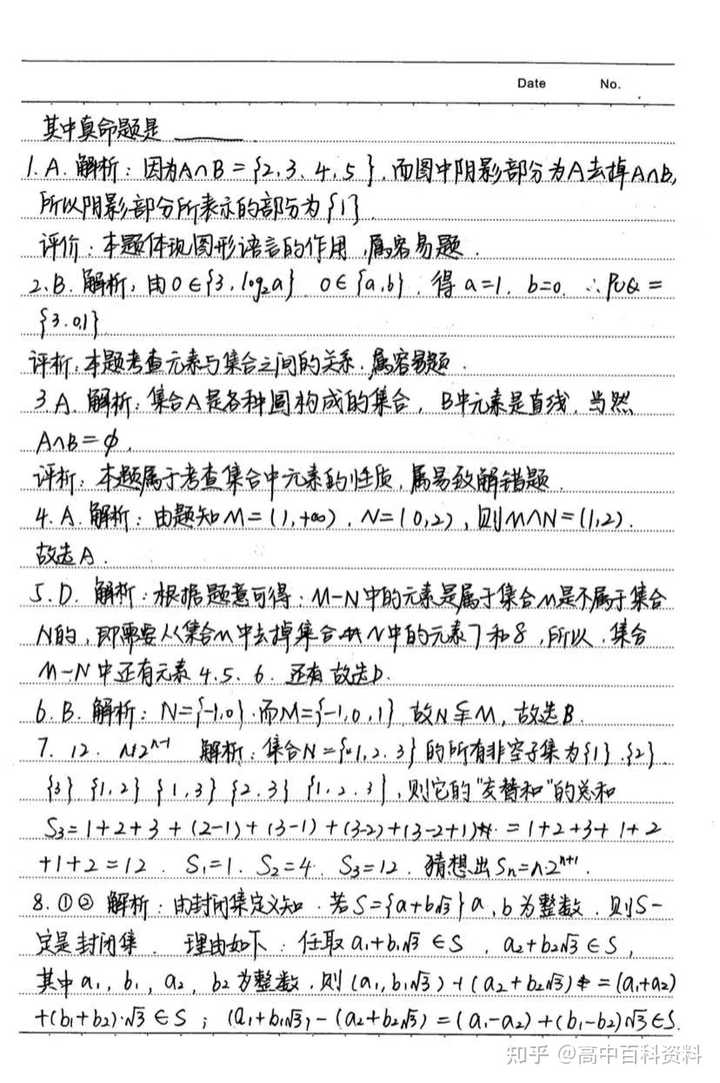 Date No.
其中真命题是 ______
1. A. 解析：因为A∩B={2,3,4,5}，而图中阴影部分为A去掉A∩B,
所以阴影部分所表示的部分为{1}.
评价：本题体现图形语言的作用，属容易题.
2. B. 解析，由0∈{3, log₂a} 0∈{a,b}, 得 a=1, b=0 ∴P∪Q=
{3.0,1}
评析：本题考查元素与集合之间的关系，属容易题.
3 A. 解析：集合A是各种圆构成的集合，B中元素是直线，当然
A∩B=∅.
评析：本题属于考查集合中元素的性质，属易致解错题.
4. A. 解析：由题知M=(1,+∞), N=(0,2), 则M∩N=(1,2).
故选A.
5. D. 解析：根据题意可得：M-N中的元素是属于集合M是不属于集合
N的，即需要从集合M中去掉集合N中的元素7和8，所以，集合
M-N中还有元素 4.5.6. 还有 故选D.
6. B. 解析：N={-1,0}.而M={-1,0,1} 故N⫋M, 故选B.
7. 12. n·2ⁿ⁻¹ 解析：集合N={1,2,3}的所有非空子集为{1}.{2}.
{3} {1,2} {1,3} {2,3} {1,2,3}, 则它的"交替和"的总和
S₃=1+2+3+(2-1)+(3-1)+(3-2)+(3-2+1) =1+2+3+1+2
+1+2=12. S₁=1. S₂=4. S₃=12. 猜想出Sₙ=n·2ⁿ⁺¹.
8. ①② 解析：由封闭集定义知. 若S={a+b√3} a,b为整数. 则S一
定是封闭集. 理由如下：任取a₁+b₁√3∈S, a₂+b₂√3∈S,
其中a₁, b₁, a₂, b₂为整数. 则(a₁,b₁√3)+(a₂+b₂√3) =(a₁+a₂)
+(b₁+b₂)·√3∈S; (a₁+b₁√3)-(a₂+b₂√3)=(a₁-a₂)+(b₁-b₂)√3∈S.
知乎 @高中百科资料